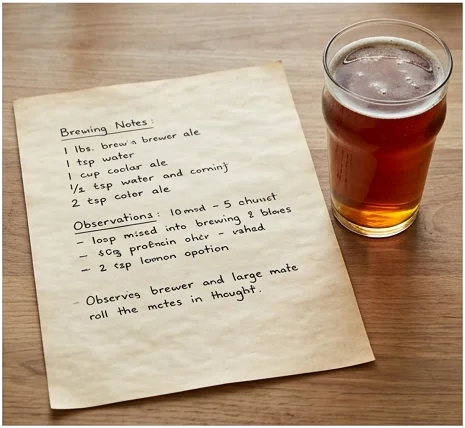 Brewing Notes:
1 lbs. brew'n brewer ale
1 tsp water
1 cup coolar ale
1/2 tsp water and
2 tsp color ale
Observations: 10 mod - 5
- loop mised into brewing & bloes
- proticin oher - vahed
- 2 tsp lomon opotion
- Observes brewer and large mate
roll the mctes in thought.